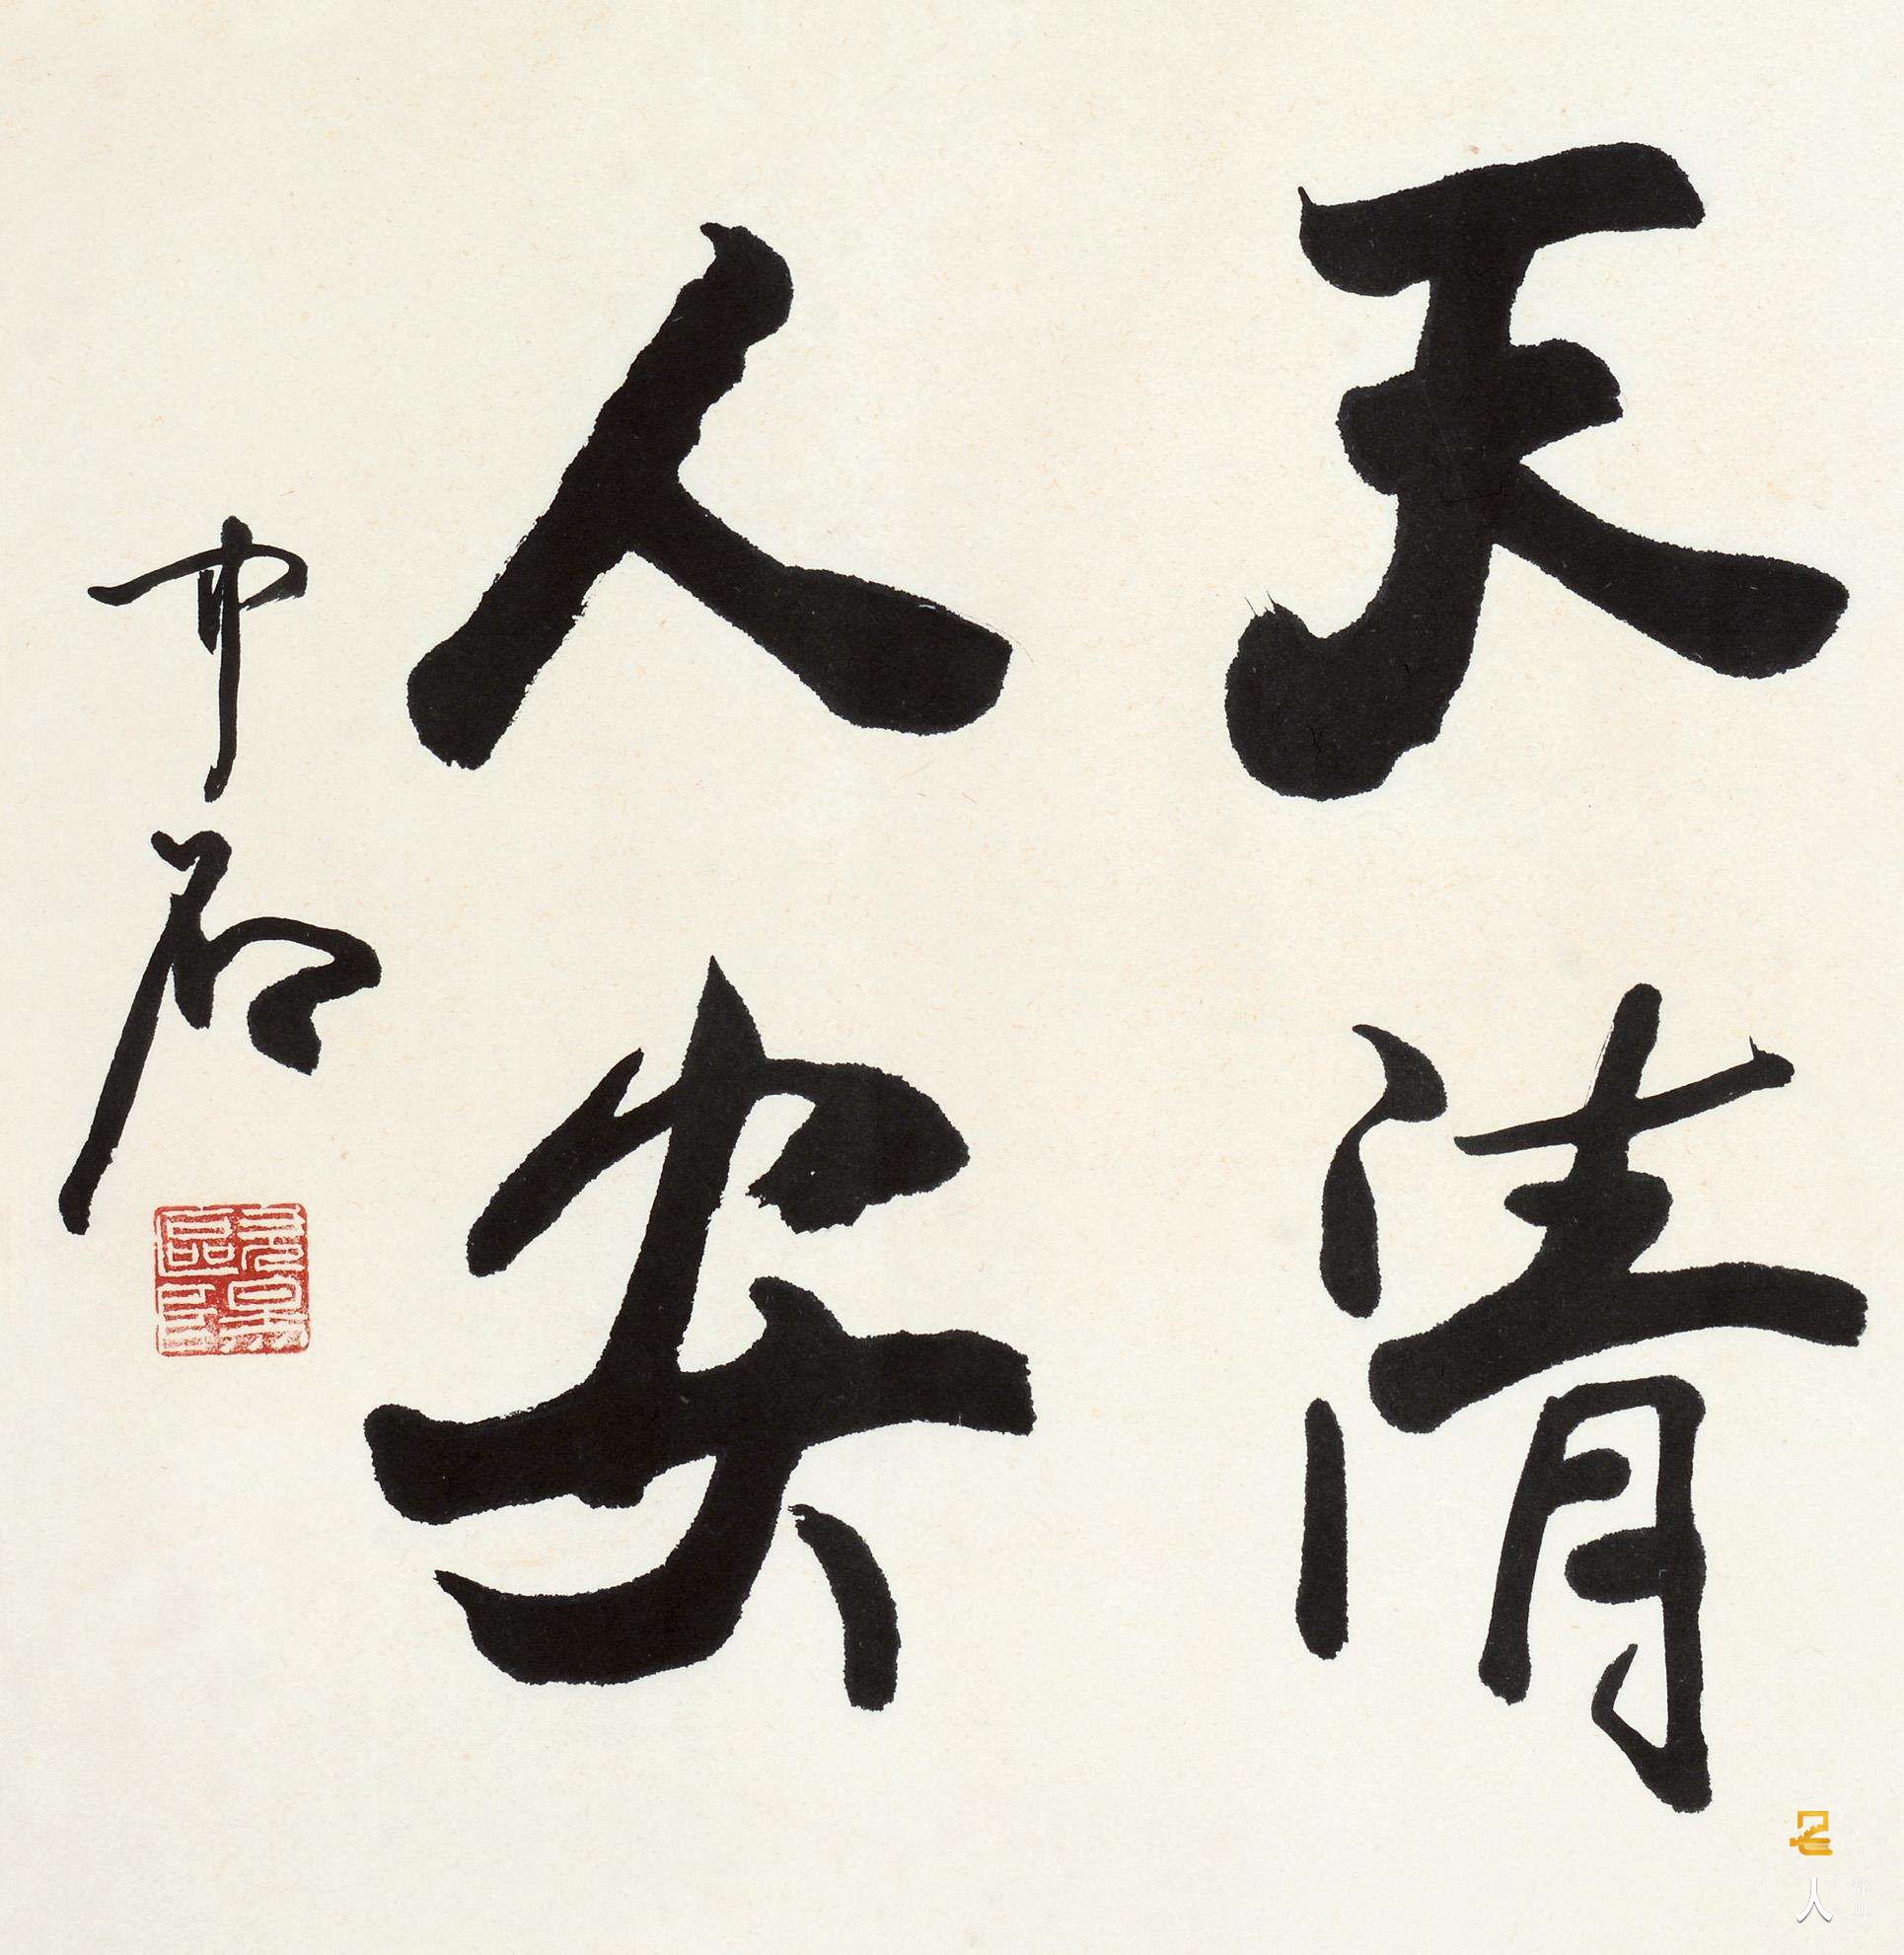 天清
人安
中石